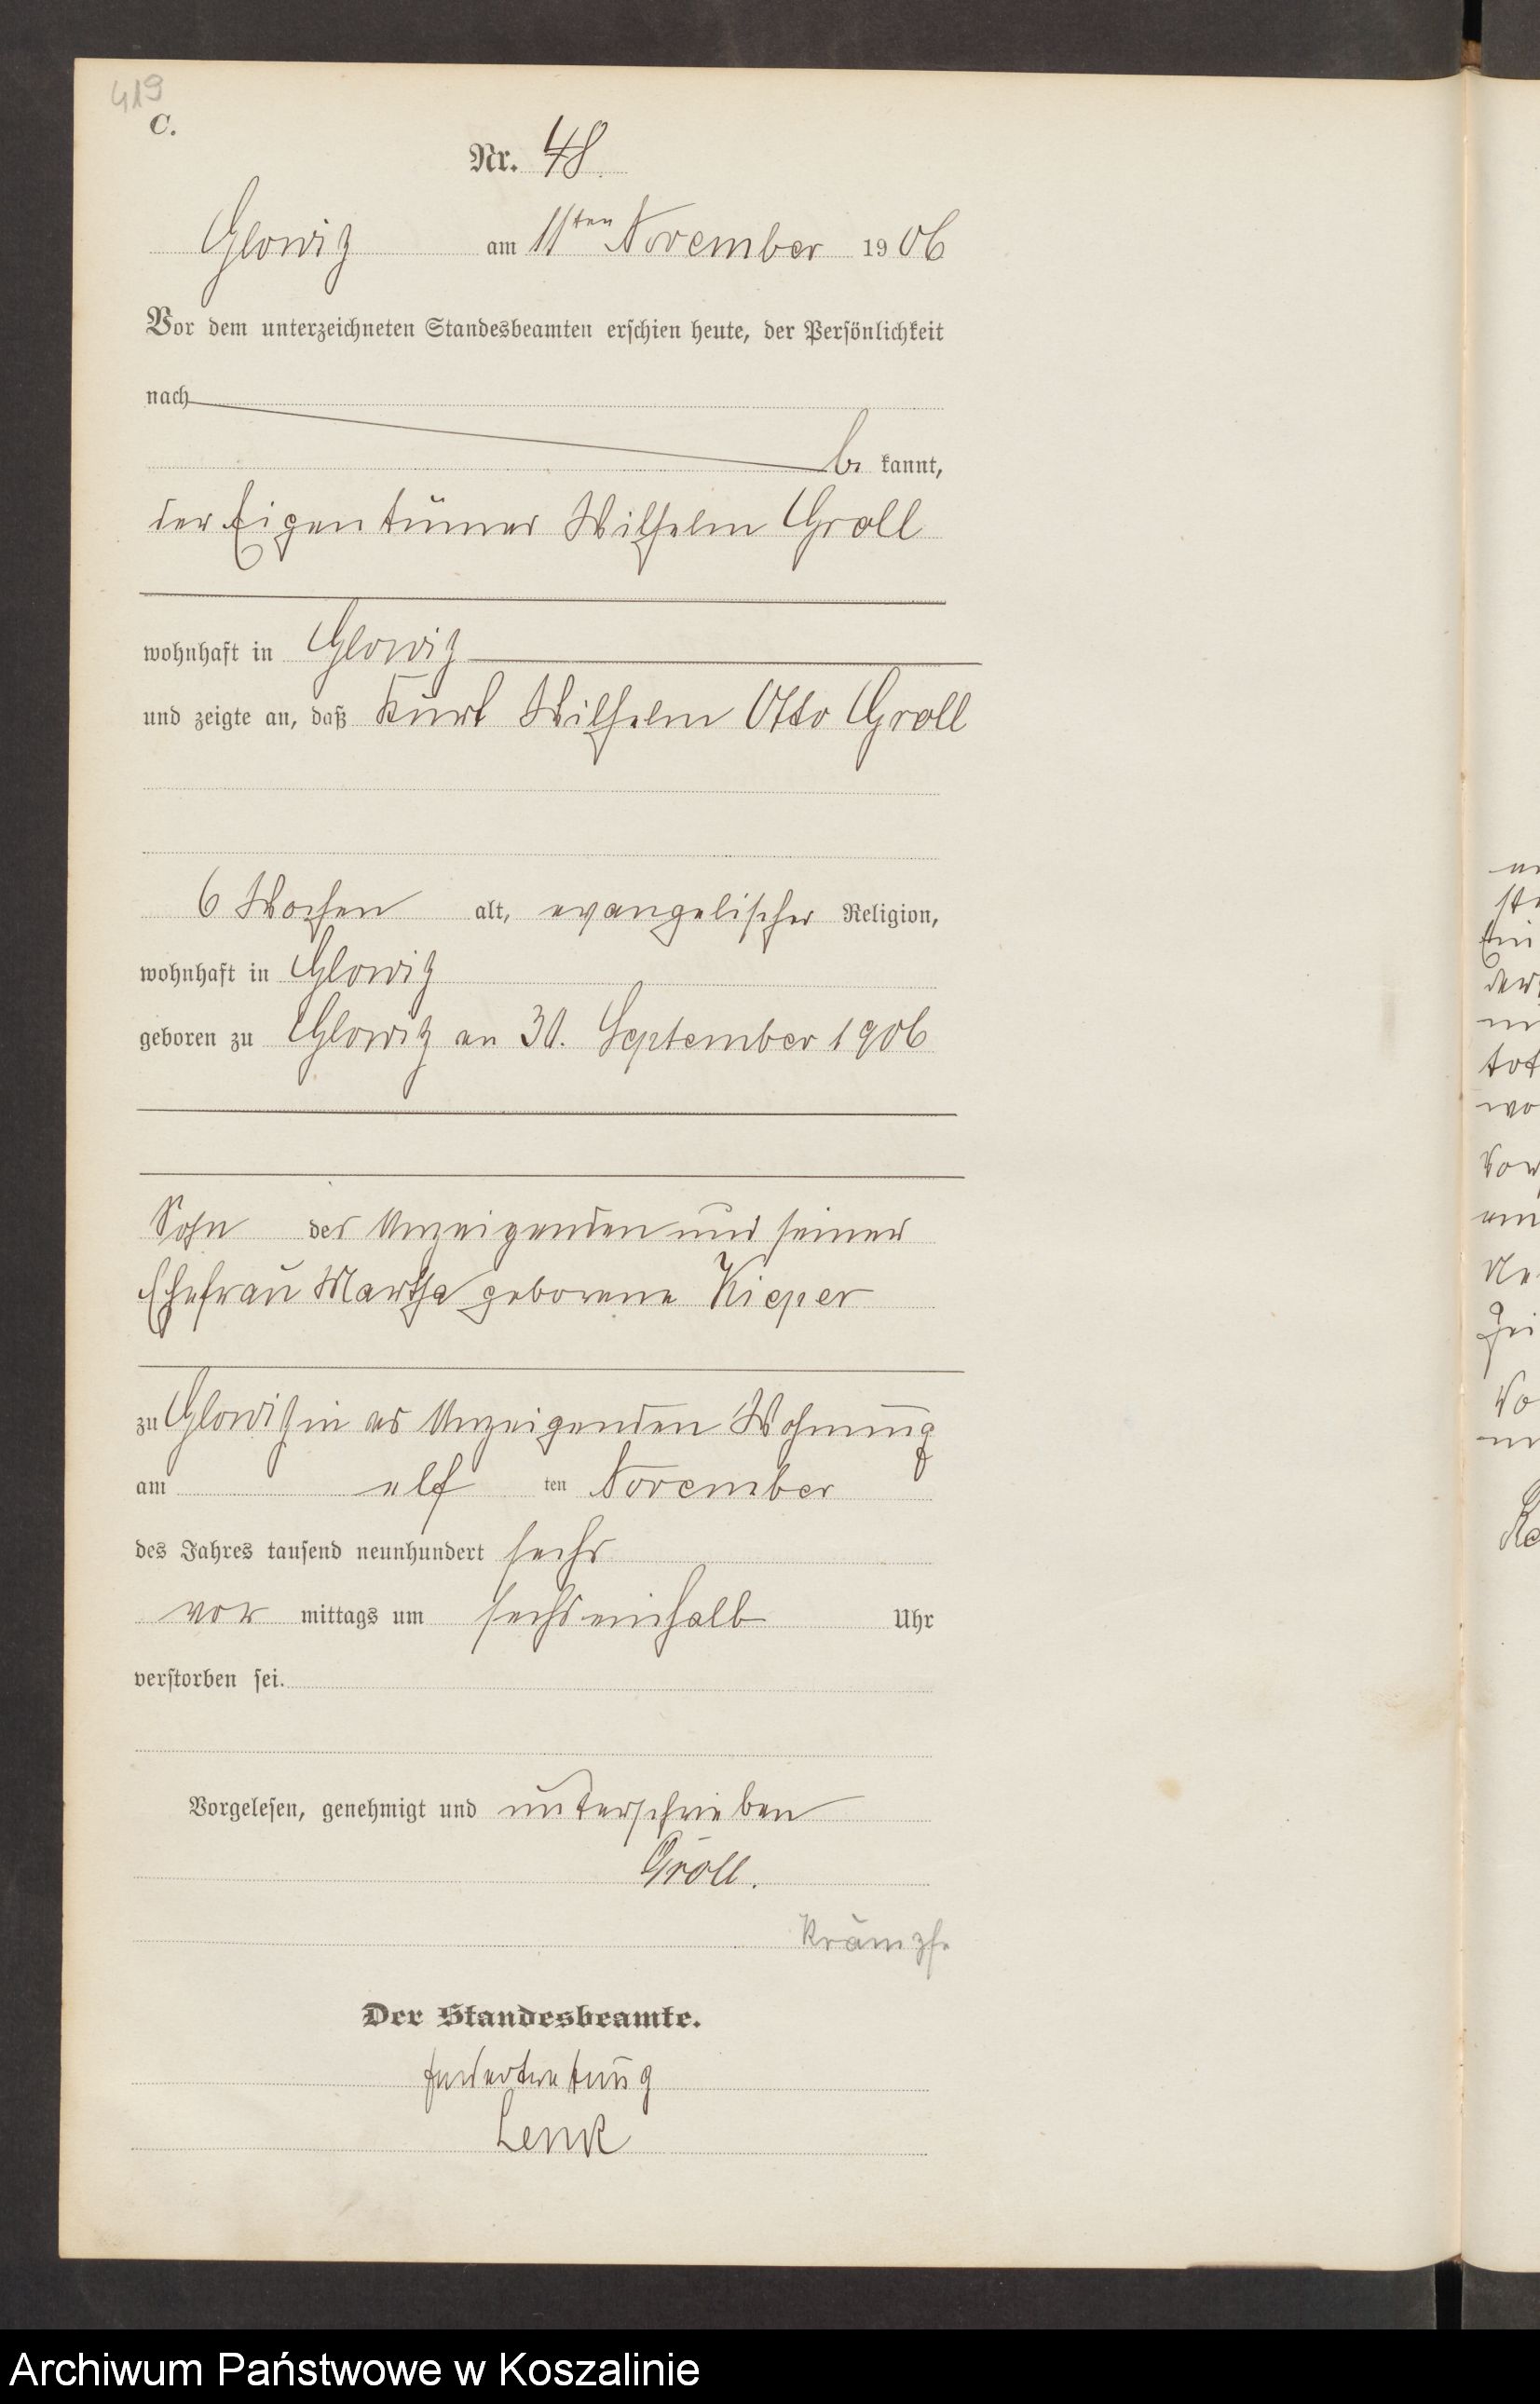 419
C.
Nr. 48.
Glowitz am 11ten November 1906
Vor dem unterzeichneten Standesbeamten erschien heute, der Persönlichkeit
nach
be kannt,
der Eigentümer Wilhelm Groll
wohnhaft in Glowitz
und zeigte an, daß Kurt Wilhelm Otto Groll
6 Wochen alt, evangelischer Religion,
wohnhaft in Glowitz
geboren zu Glowitz am 30. September 1906
Sohn des Anzeigenden und seiner
Ehefrau Martha geborene Kieper
zu Glowitz in des Anzeigenden Wohnung
am elf ten November
des Jahres tausend neunhundert sechs
vor mittags um sechseinhalb Uhr
verstorben sei.
Vorgelesen, genehmigt und unterschrieben
Groll.
Krämpfe
Der Standesbeamte.
Lenk
Archiwum Państwowe w Koszalinie